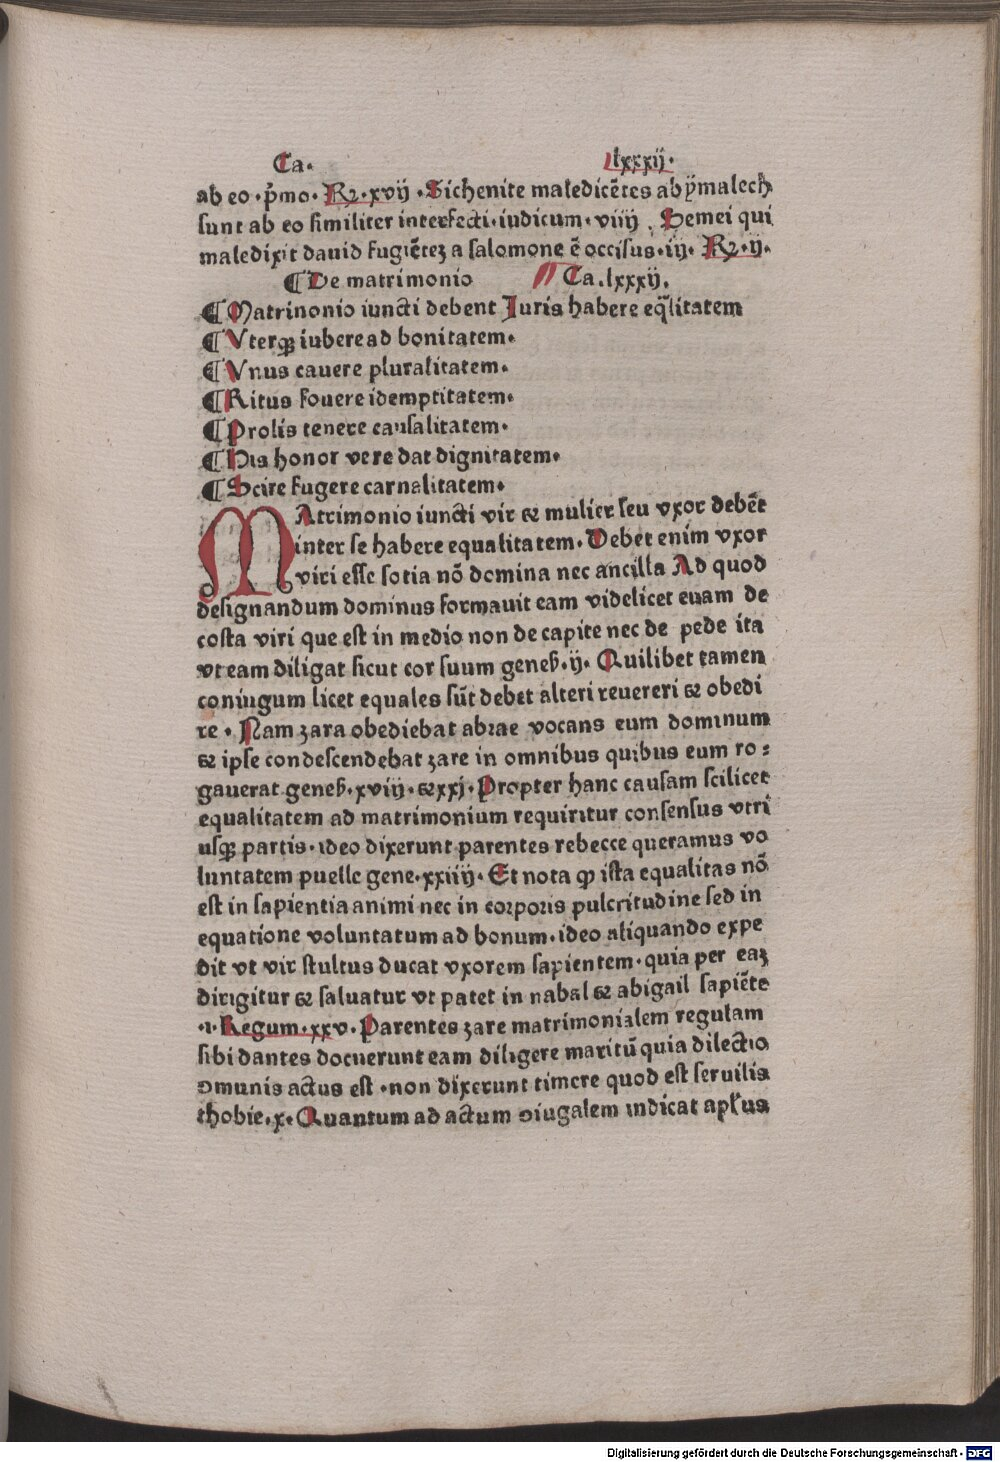 Ca. lxxxij.
ab eo .p̄mo. Rꝫ. xvij . Sichenite maledicẽtes abÿmalech
sunt ab eo similiter interfecti. iudicum. viiij . Semei qui
maledixit dauid fugiẽteʒ a salomone ē occisus. iij. Rꝫ. ij.
¶ De matrimonio Ca. lxxxij.
¶ Matrinonio iuncti debent Iuris habere eq̃litatem
¶ Vterqꝫ iubere ad bonitatem.
¶ Vnus cauere pluralitatem.
¶ Ritus fouere idemptitatem.
¶ Prolis tenere causalitatem.
¶ His honor vere dat dignitatem.
¶ Scire fugere carnalitatem.
MAtrimonio iuncti vir ⁊ mulier seu vxor debẽt
inter se habere equalitatem. Debet enim vxor
viri esse sotia nō domina nec ancilla Ad quod
designandum dominus formauit eam videlicet euam de
costa viri que est in medio non de capite nec de pede ita
vt eam diligat sicut cor suum geneß. ij. Quilibet tamen
coniugum licet equales sũt debet alteri reuereri ⁊ obedi
re . Nam zara obediebat abrae vocans eum dominum
⁊ ipse condescendebat zare in omnibus quibus eum ro⸗
gauerat geneß. xviij. ⁊xxj. Propter hanc causam scilicet
equalitatem ad matrimonium requiritur consensus vtri
usqꝫ partis. ideo dixerunt parentes rebecce queramus vo
luntatem puelle gene. xxiiij. Et nota ꝙ ista equalitas nō
est in sapientia animi nec in corporis pulcritudine sed in
equatione voluntatum ad bonum. ideo aliquando expe
dit vt vir stultus ducat vxorem sapientem. quia per eaʒ
dirigitur ⁊ saluatur vt patet in nabal ⁊ abigail sapiẽte
.i. Regum. xxv. Parentes zare matrimonialem regulam
sibi dantes docuerunt eam diligere maritũ quia dilectio
ↄmunis actus est . non dixerunt timere quod est seruilis
thobie. x. Quantum ad actum ↄiugalem indicat apl̃us
Digitalisierung gefördert durch die Deutsche Forschungsgemeinschaft - DFG